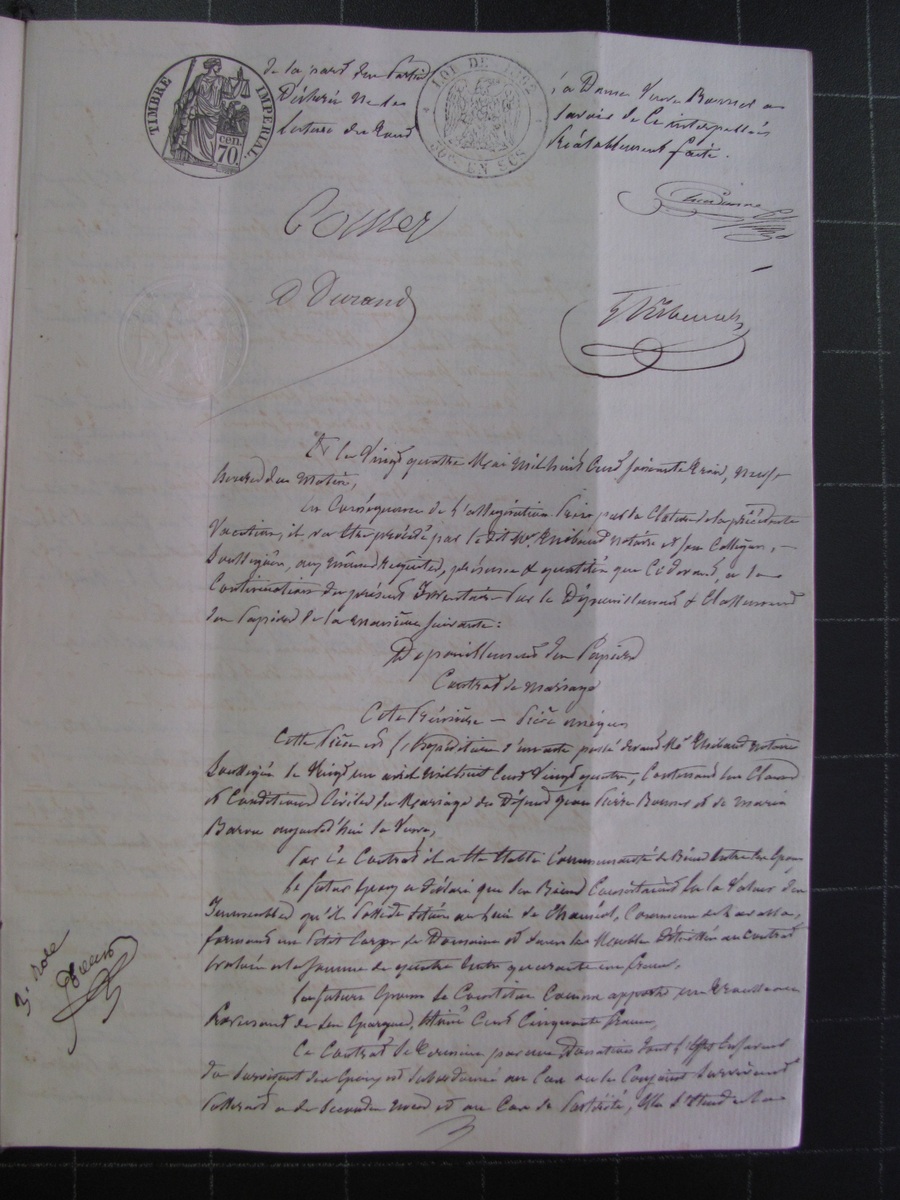 TIMBRE IMPERIAL
cen. 70
LOI DE 1862
de la part des Parties
Déclaré ne le
lecture du tout
la Dame Veuve Bonnet a
savoir de ce interpellée
Préalablement faite.
D Durand
Et le Vingt quatre Mai Mil huit Cent soixante trois, neuf
heures du matin,
En Conséquence de l'assignation prise par la Clôture de la précédente
Vacation, il va être procédé par le dit Me Thibaud notaire et son Collègue,
Soussignés, aux mêmes requêtes, présence et qualités que Ce devant, à la
Continuation du présent Inventaire par le Dépouillement et Classement
des papiers de la manière suivante :
Dépouillement des Papiers
Contrat de mariage
Cote Première — Pièce unique
Cette Pièce est l'expédition d'un acte passé devant Me Thibaud notaire
Soussigné le Vingt un avril Mil huit Cent Vingt quatre, Contenant les Clauses
et Conditions Civiles du Mariage du Défunt Jean Pierre Bonnet et de Marie
Baron aujourd'hui sa Veuve,
Par ce Contrat il a été établi Communauté de Biens entre les époux
Le futur époux a déclaré que ses Biens Consistaient en la Valeur des
Immeubles qu'il possède situés au lieu de Commune de
formant un petit Corps de Domaine et dans les Meubles détaillés au Contrat
évalués à la somme de quatre Cents quarante un francs,
La future épouse se Constitue Comme apport un Trousseau
Provenant de ses épargnes, estimé Cent Cinquante francs,
Ce Contrat se termine par une Donation dont l'effet en faveur
du survivant des époux est subordonné au Cas où le Conjoint survivant
passerait à de secondes noces et au Cas de postérité, elle s'étend à la
3e Rôle